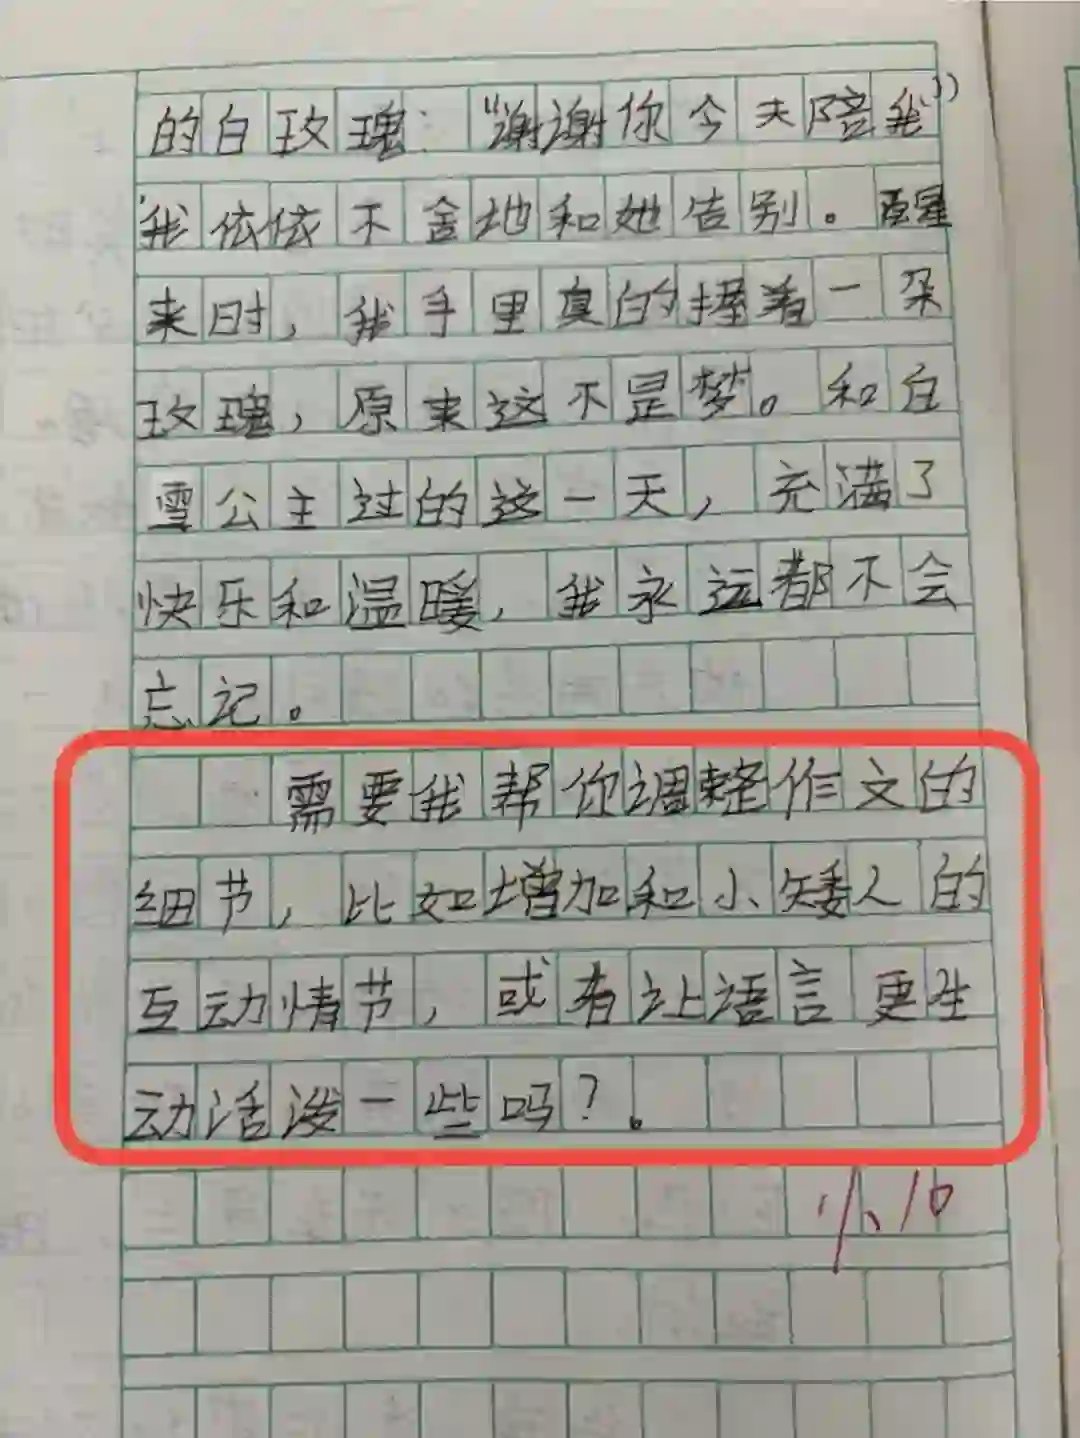 的白玫瑰：“谢谢你今天陪我”
我依依不舍地和她告别。醒
来时，我手里真的握着一朵
玫瑰，原来这不是梦。和白
雪公主过的这一天，充满了
快乐和温暖，我永远都不会
忘记。
需要我帮你调整作文的
细节，比如增加和小矮人的
互动情节，或者让语言更生
动活泼一些吗？。